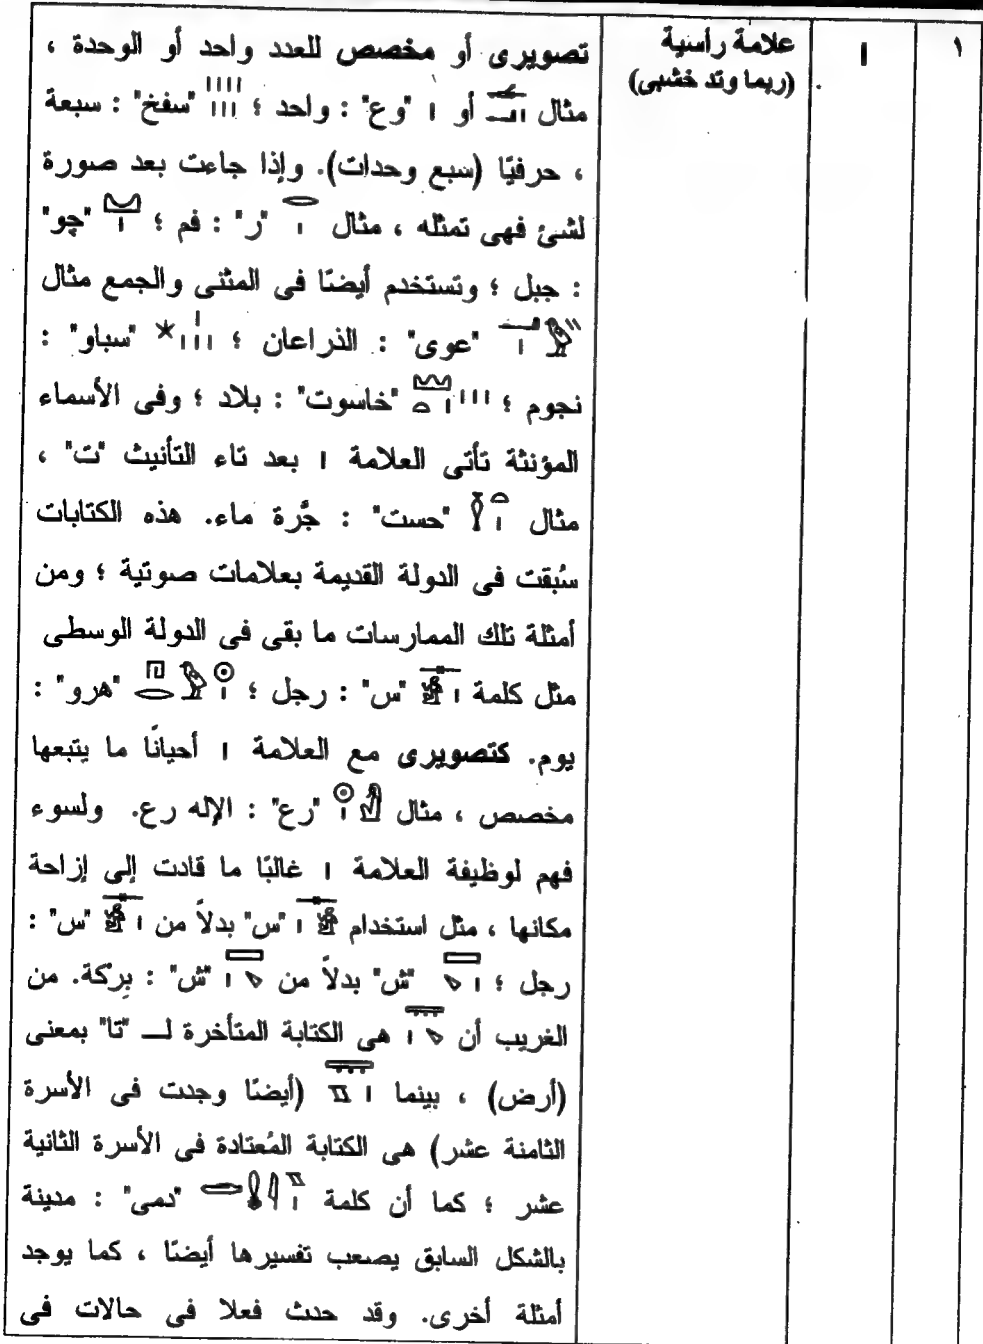 ١
𓏤
علامة رأسية
(ربما وتد خشبى)
تصويرى أو مخصص للعدد واحد أو الوحدة ،
مثال أو 𓏤 "وع" : واحد ؛ "سفخ" : سبعة
، حرفيًا (سبع وحدات). وإذا جاءت بعد صورة
لشئ فهى تمثله ، مثال 𓂋𓏤 "ر" : فم ؛ 𓈋𓏤 "چو"
: جبل ؛ وتستخدم أيضًا فى المثنى والجمع مثال
"عوى" : الذراعان ؛ "سباو" :
نجوم ؛ "خاسوت" : بلاد ؛ وفى الأسماء
المؤنثة تأتى العلامة 𓏤 بعد تاء التأنيث "ت" ،
مثال "حست" : جَّرة ماء. هذه الكتابات
سُبقت فى الدولة القديمة بعلامات صوتية ؛ ومن
أمثلة تلك الممارسات ما بقى فى الدولة الوسطى
مثل كلمة "س" : رجل ؛ "هرو" :
يوم. كتصويرى مع العلامة 𓏤 أحيانًا ما يتبعها
مخصص ، مثال "رع" : الإله رع. ولسوء
فهم لوظيفة العلامة 𓏤 غالبًا ما قادت إلى إزاحة
مكانها ، مثل استخدام "س" بدلاً من "س" :
رجل ؛ "ش" بدلاً من "ش" : بِركة. من
الغريب أن هى الكتابة المتأخرة لـــ "تا" بمعنى
(أرض) ، بينما (أيضًا وجدت فى الأسرة
الثامنة عشر) هى الكتابة المُعتادة فى الأسرة الثانية
عشر ؛ كما أن كلمة "دمى" : مدينة
بالشكل السابق يصعب تفسيرها أيضًا ، كما يوجد
أمثلة أخرى. وقد حدث فعلا فى حالات فى